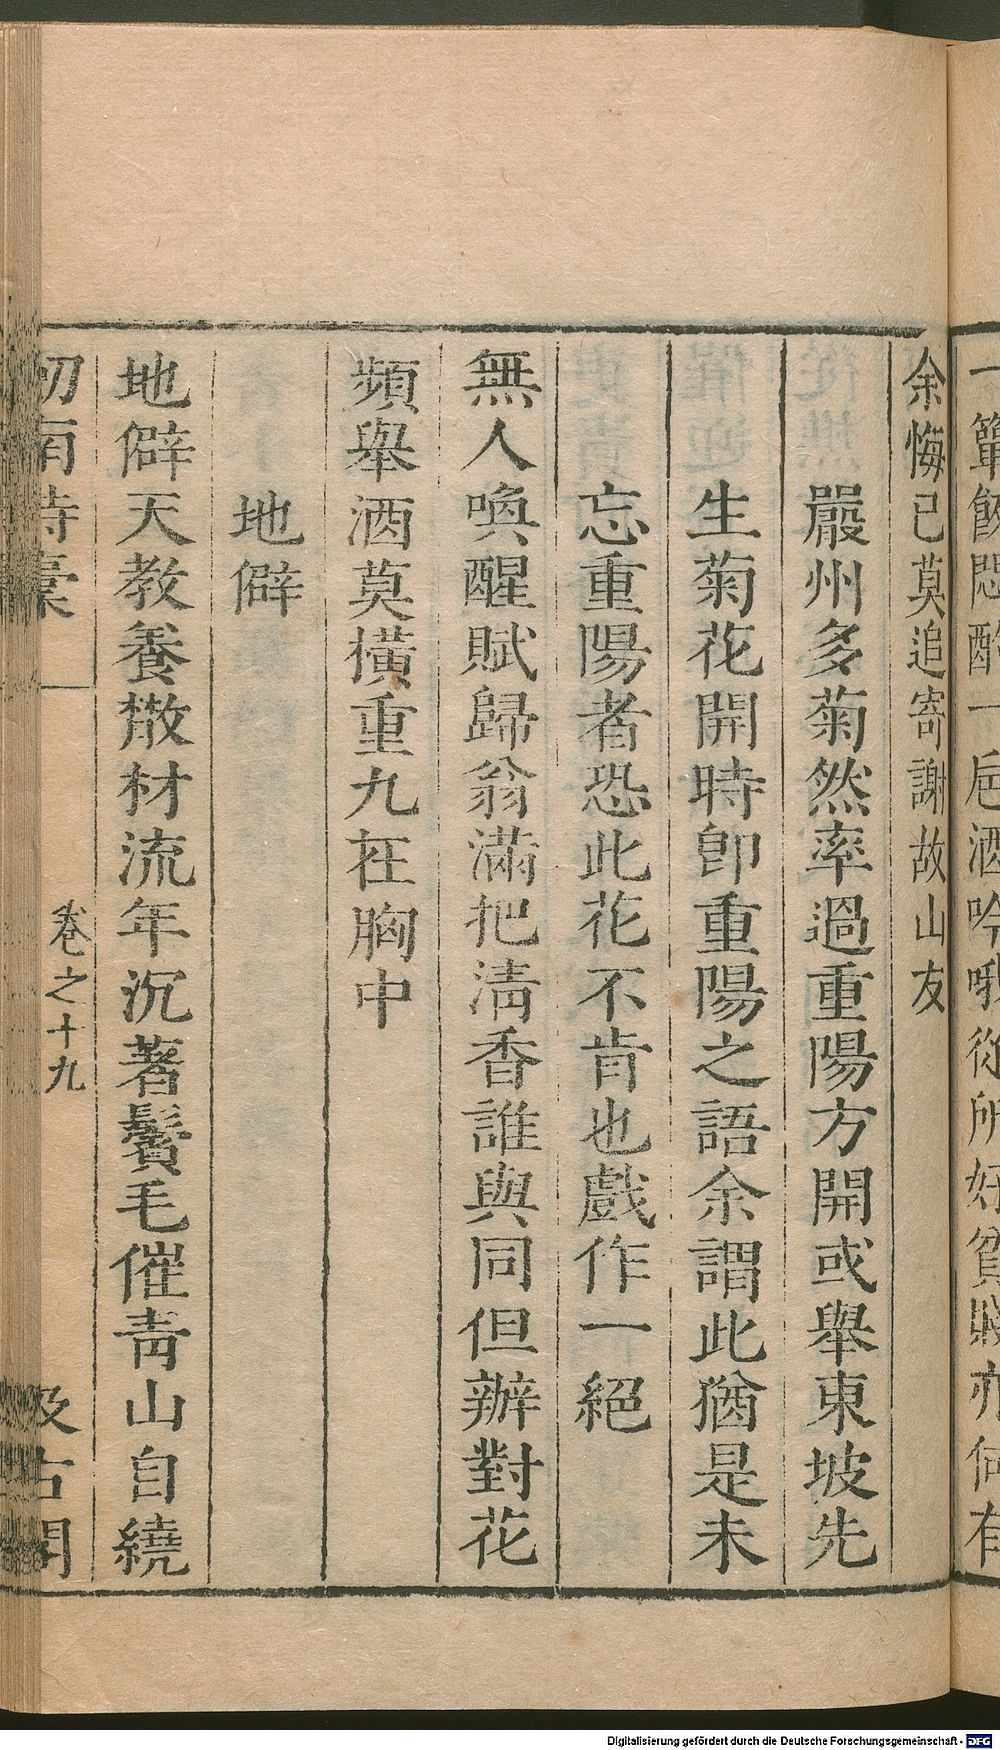 一簞飲悶酌一巵酒吟哦從所好貧賤亦何有
余悔已莫追寄謝故山友
嚴州多菊然率過重陽方開或舉東坡先
生菊花開時卽重陽之語余謂此猶是未
忘重陽者恐此花不肯也戲作一絕
無人喚醒賦歸翁滿把淸香誰與同但辦對花
頻舉酒莫橫重九在胸中
地僻
地僻天敎養散材流年沉著鬢毛催靑山自繞
劒南詩稾
卷之十九
汲古閣
Digitalisierung gefördert durch die Deutsche Forschungsgemeinschaft - DFG